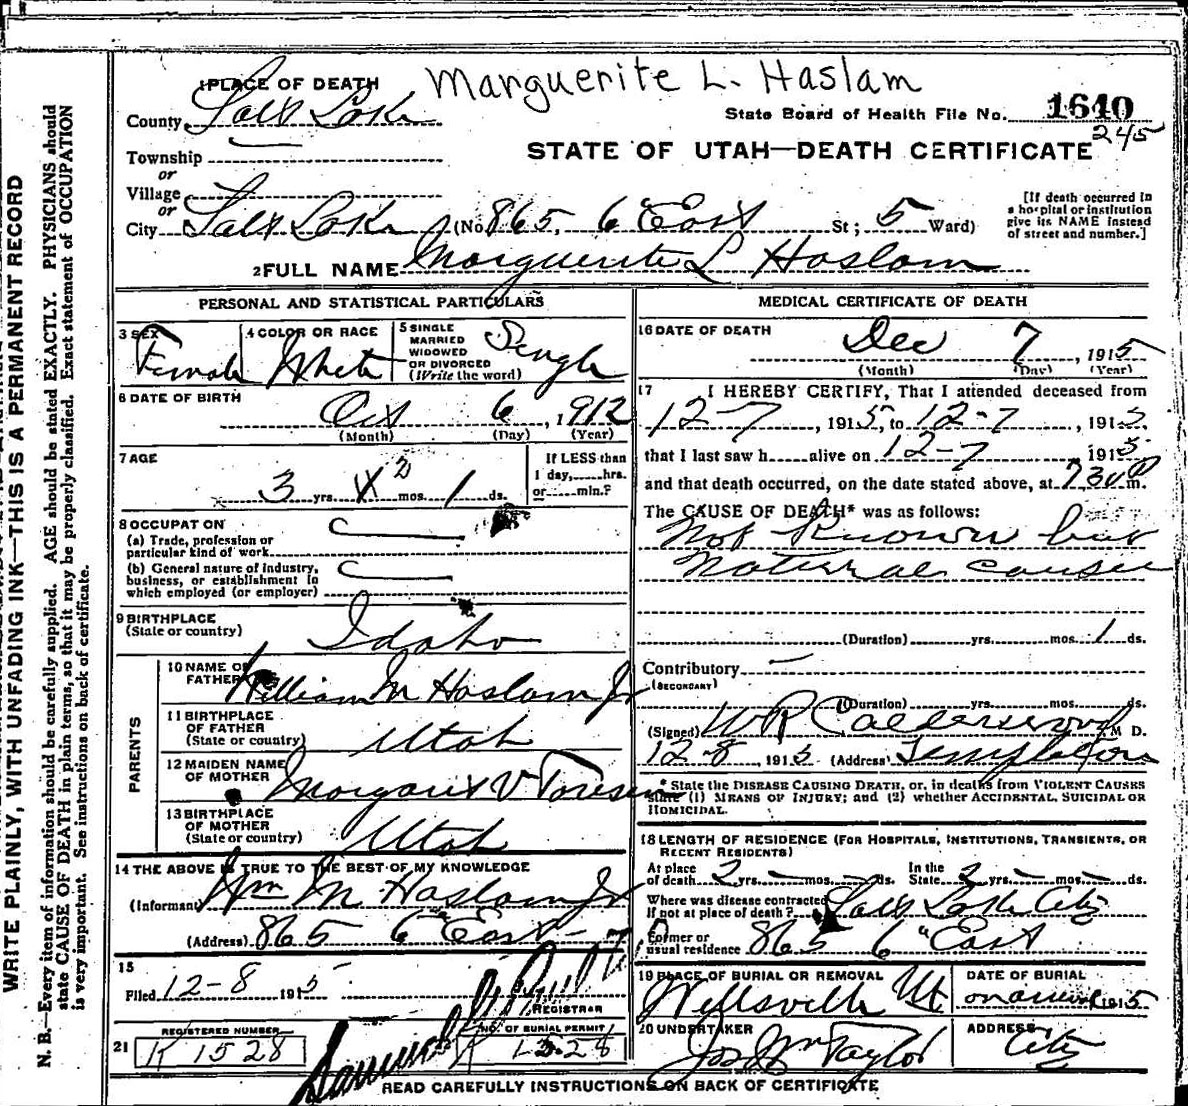 Marguerite L. Haslam
1 PLACE OF DEATH
County Salt Lake
State Board of Health File No. 1640
245
Township
or
Village
or
City Salt Lake (No. 865, 6" East St; 5 Ward)
STATE OF UTAH—DEATH CERTIFICATE
[If death occurred in
a hospital or institution
give its NAME instead
of street and number.]
2 FULL NAME Marguerite L Haslam
PERSONAL AND STATISTICAL PARTICULARS
3 SEX Female
4 COLOR OR RACE White
5 SINGLE
MARRIED
WIDOWED
OR DIVORCED
(Write the word) Single
6 DATE OF BIRTH
Oct 6, 1912
(Month) (Day) (Year)
7 AGE
3 yrs. 2 mos. 1 ds.
If LESS than
1 day,.....hrs.
or.....min.?
8 OCCUPATION
(a) Trade, profession or
particular kind of work
(b) General nature of industry,
business, or establishment in
which employed (or employer)
9 BIRTHPLACE
(State or country) Idaho
PARENTS
10 NAME OF
FATHER William M Haslam Jr
11 BIRTHPLACE
OF FATHER
(State or country) Utah
12 MAIDEN NAME
OF MOTHER Margaret V
13 BIRTHPLACE
OF MOTHER
(State or country) Utah
14 THE ABOVE IS TRUE TO THE BEST OF MY KNOWLEDGE
(Informant) Wm M Haslam Jr
(Address) 865 6" East
15
Filed 12-8 1915
REGISTRAR
21
REGISTERED NUMBER
K 1528
NO. OF BURIAL PERMIT
K 1528
MEDICAL CERTIFICATE OF DEATH
16 DATE OF DEATH
Dec 7, 1915
(Month) (Day) (Year)
17 I HEREBY CERTIFY, That I attended deceased from
12-7, 1915, to 12-7, 1915.
that I last saw h.....alive on 12-7 1915
and that death occurred, on the date stated above, at 730 P m.
The CAUSE OF DEATH* was as follows:
Not Known but
Natural causes
(Duration) yrs. mos. 1 ds.
Contributory
(SECONDARY)
(Duration) yrs. mos. ds.
(Signed) W R Calderwood, M D.
12-8, 1915 (Address) Templeton
* State the DISEASE CAUSING DEATH, or, in deaths from VIOLENT CAUSES
state (1) MEANS OF INJURY; and (2) whether ACCIDENTAL, SUICIDAL OR
HOMICIDAL.
18 LENGTH OF RESIDENCE (FOR HOSPITALS, INSTITUTIONS, TRANSIENTS, OR
RECENT RESIDENTS)
At place
of death 2 yrs. mos. ds.
In the
State 2 yrs. mos. ds.
Where was disease contracted
if not at place of death? Salt Lake City
Former or
usual residence 865 6" East
19 PLACE OF BURIAL OR REMOVAL
Wellsville Ut
DATE OF BURIAL
on arrival 1915
20 UNDERTAKER
Jos Wm Taylor
ADDRESS
City
READ CAREFULLY INSTRUCTIONS ON BACK OF CERTIFICATE
WRITE PLAINLY, WITH UNFADING INK—THIS IS A PERMANENT RECORD
N. B.—Every item of information should be carefully supplied. AGE should be stated EXACTLY. PHYSICIANS should
state CAUSE OF DEATH in plain terms, so that it may be properly classified. Exact statement of OCCUPATION
is very important. See instructions on back of certificate.